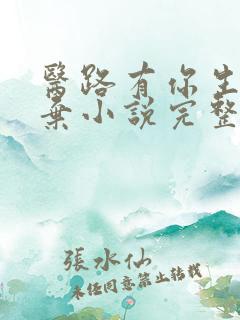 醫路有你生
棄小說完整
張水仙
未經同意禁止轉載